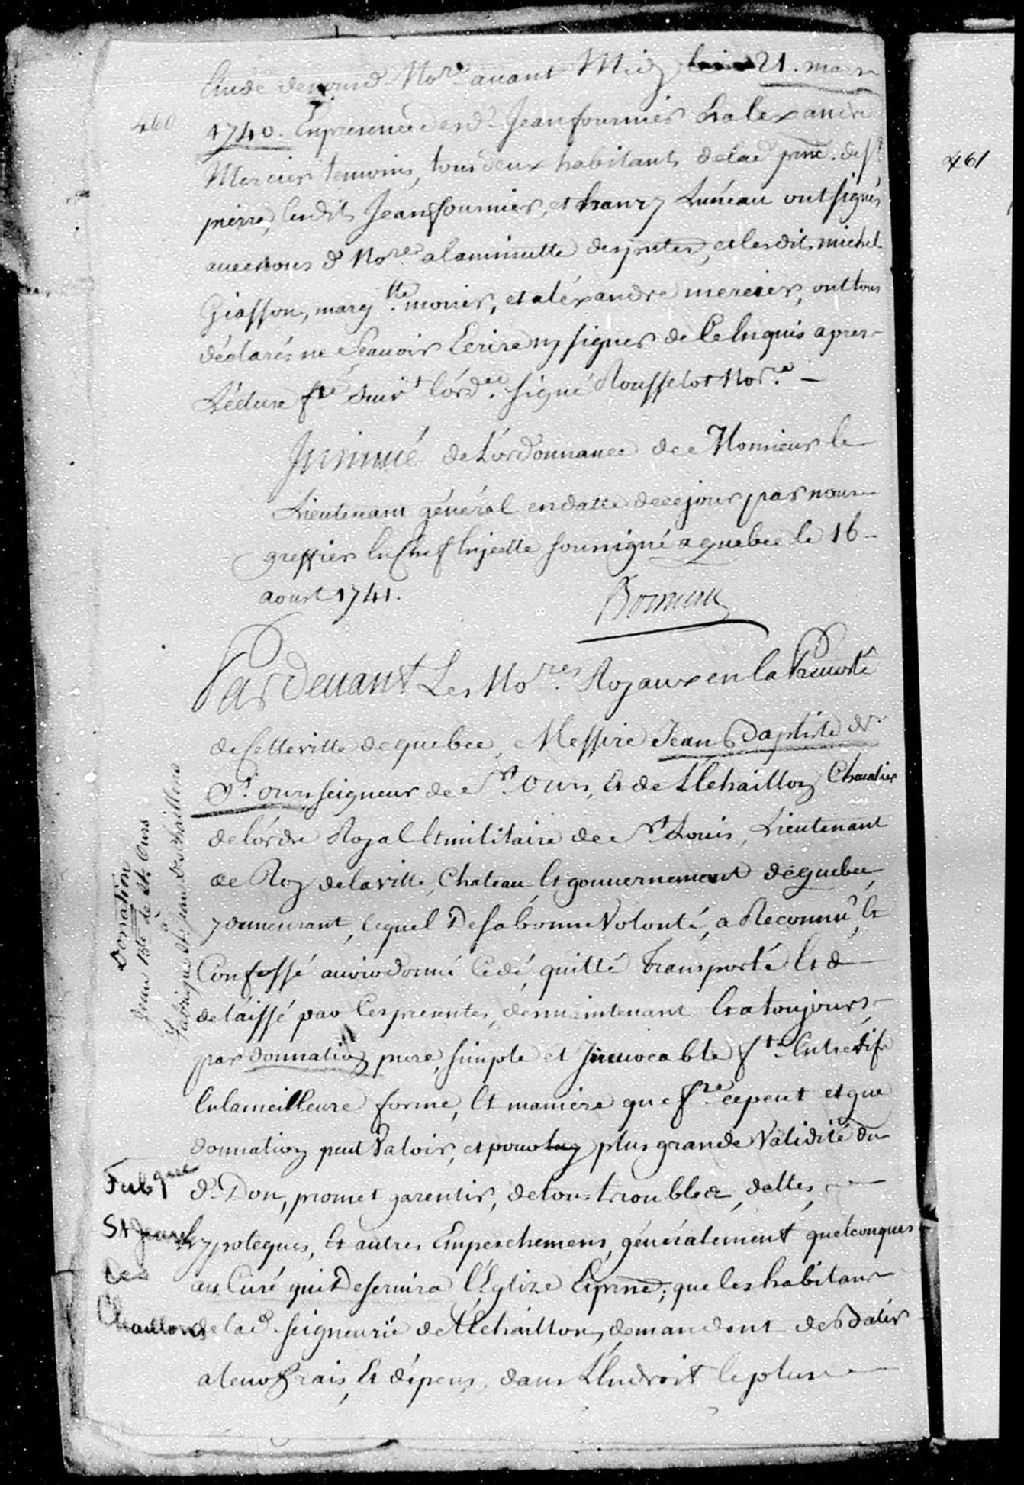 Etude de nous d. No.re avant Midy le 21. mars
460
1740. En presence des d. Jean fournier & alexandre
Mercier temoins, tous deux habitants de lad. p.sse de S.t
pierre, lesdits Jean fournier, et hanry Luneau ont signés
avec nous d. No.re a la minutte des p.ntes, et lesdit. michel
Giasson, marg.tte monier, et aléxandre mercier, ont tous
déclarés ne Sçavoir Ecrire ny signer de Ce Enquis apres
Lecture f.te suiv.t l'ord.ce signé Rousselot No.re
Insinué de L'ordonnance de Monsieur le
Lieutenant général en datte de ce jour par nous
greffier En Chef Iceluy soussigné a quebec le 16
aoust 1741.
Boisseau
Pardevant Les No.res Royaux en la Prevosté
de Cette ville de quebec, Messire Jean Baptiste de
S.t ours seigneur de S.t Ours, et de L'Echaillon Chevalier
de l'ordre Royal Et militaire de S.t Louis, Lieutenant
de Roy de la ville, Chateau, Et gouvernement de quebec
y demeurant, lequel De sa bonne Volonté, a Reconnu, Et
Confessé avoir donné Cedé, quitté Transporté Et
delaissé par Ces presentes, des maintenant Et a toujours,
par donnation pure, simple et Irrevocable f.te Entre vifs
En la meilleure forme, Et maniere que f.re ce peut et que
donnation peut Valoir, et pour plus grande Validité du
d. Don, promet garentir, de tous troubles, dettes,
hypoteques, Et autres Empeschemens, généralement quelconques
au Curé qui Deservira l'Eglize Eprne; que les habitans
de lad. seigneurie de L'Echaillon, demandent de Batir
a leurs frais, Et dépens, dans L'Endroit le plus
Donation
Jean Bte de St. Ours
à
Fabrique St. Jean Deschaillons
Fabque
St Jean
des
Chaillons
461